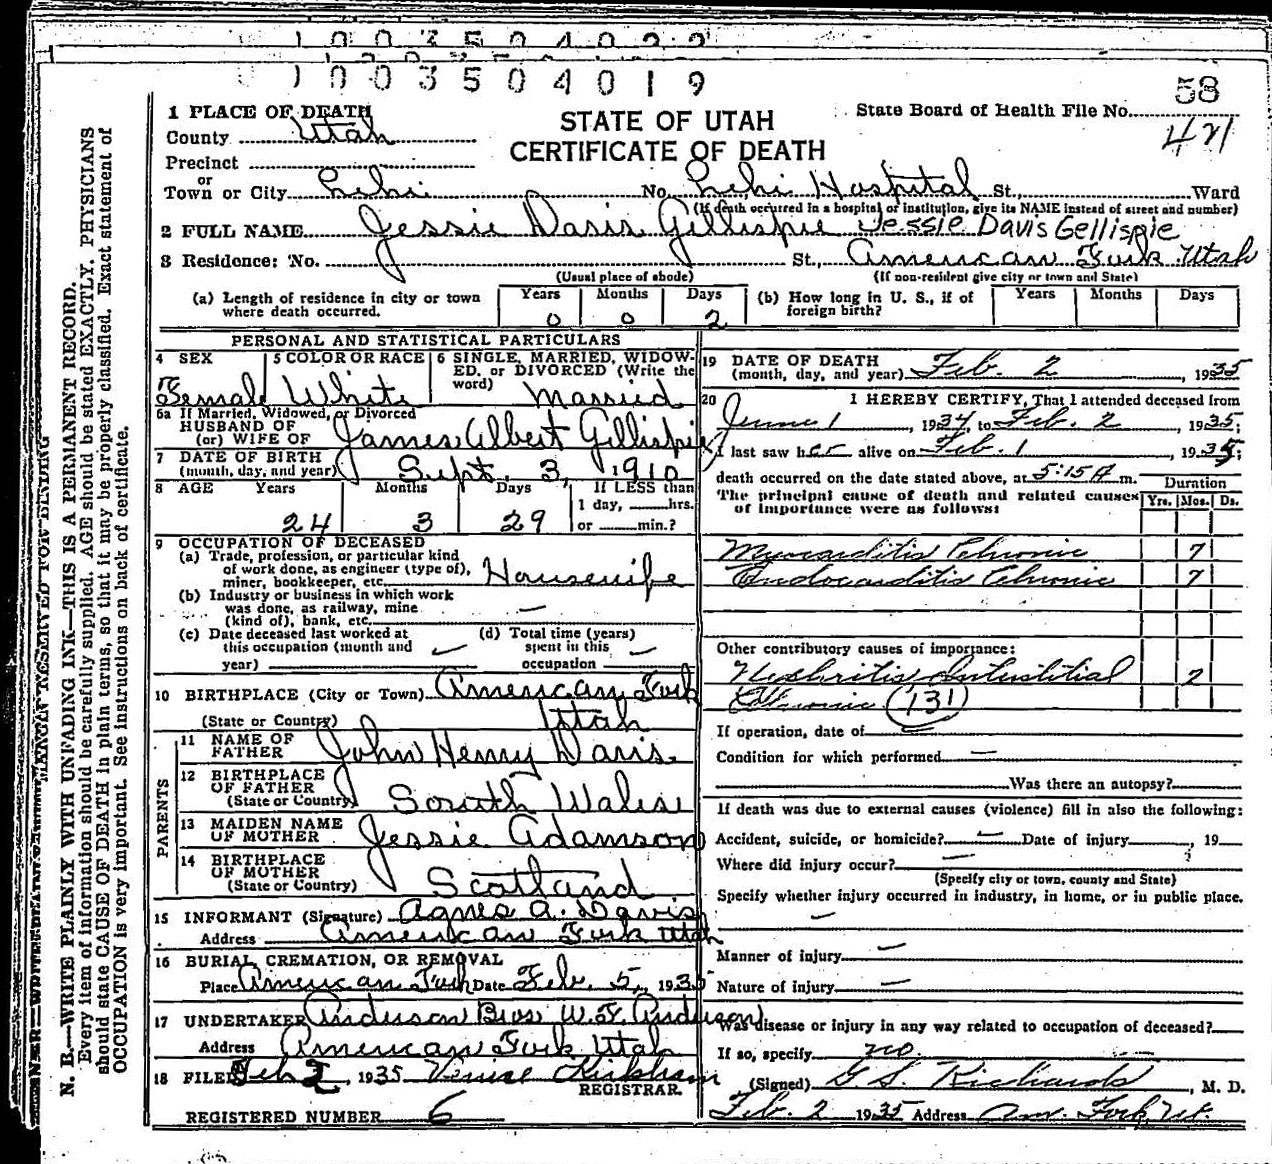 1003504019
58
State Board of Health File No.
421
STATE OF UTAH
CERTIFICATE OF DEATH
1 PLACE OF DEATH
County Utah
Precinct
or
Town or City Lehi No. Lehi Hospital St., Ward
(If death occurred in a hospital of institution, give its NAME instead of street and number)
2 FULL NAME Jessie Davis Gillispie Jessie Davis Gellispie
3 Residence: No. St., American Fork Utah
(Usual place of abode) (If non-resident give city or town and State)
(a) Length of residence in city or town where death occurred. Years 0 Months 0 Days 2
(b) How long in U. S., if of foreign birth? Years Months Days
PERSONAL AND STATISTICAL PARTICULARS
4 SEX Female
5 COLOR OR RACE White
6 SINGLE, MARRIED, WIDOWED, or DIVORCED (Write the word) Married
6a If Married, Widowed, or Divorced
HUSBAND OF
(or) WIFE OF James Albert Gillispie
7 DATE OF BIRTH
(month, day, and year) Sept. 3, 1910
8 AGE Years 24 Months 3 Days 29 If LESS than
1 day, hrs.
or min.?
9 OCCUPATION OF DECEASED
(a) Trade, profession, or particular kind
of work done, as engineer (type of),
miner, bookkeeper, etc. Housewife
(b) Industry or business in which work
was done, as railway, mine
(kind of), bank, etc.
(c) Date deceased last worked at
this occupation (month and
year)
(d) Total time (years)
spent in this
occupation
10 BIRTHPLACE (City or Town) American Fork
(State or Country) Utah
PARENTS
11 NAME OF
FATHER John Henry Davis
12 BIRTHPLACE
OF FATHER
(State or Country) South Wales
13 MAIDEN NAME
OF MOTHER Jessie Adamson
14 BIRTHPLACE
OF MOTHER
(State or Country) Scotland
15 INFORMANT (Signature) Agnes A. Davis
Address American Fork Utah
16 BURIAL, CREMATION, OR REMOVAL
Place American Fork Date Feb. 5, 1935
17 UNDERTAKER Anderson Bros W. F. Anderson
Address American Fork Utah
18 FILED Feb 2, 1935 Venise Kirkham
REGISTRAR.
REGISTERED NUMBER 6
19 DATE OF DEATH
(month, day, and year) Feb. 2, 1935
20 I HEREBY CERTIFY, That I attended deceased from
June 1, 1934, to Feb. 2 1935;
I last saw her alive on Feb. 1, 1935;
death occurred on the date stated above, at 5:15 A m.
The principal cause of death and related causes
of importance were as follows:
Duration
Yrs. Mos. Ds.
Myocarditis Chronic 7
Endocarditis Chronic 7
Other contributory causes of importance:
Nephritis Intestitial 2
Chronic (131)
If operation, date of
Condition for which performed
Was there an autopsy?
If death was due to external causes (violence) fill in also the following:
Accident, suicide, or homicide? Date of injury, 19
Where did injury occur?
(Specify city or town, county and State)
Specify whether injury occurred in industry, in home, or in public place.
Manner of injury
Nature of injury
Was disease or injury in any way related to occupation of deceased?
If so, specify no
(Signed) G. S. Richards, M. D.
Feb. 2 1935 Address Am. Fork, Ut.
MARGIN RESERVED FOR BINDING
N. B.—WRITE PLAINLY WITH UNFADING INK—THIS IS A PERMANENT RECORD.
Every item of information should be carefully supplied. AGE should be stated EXACTLY. PHYSICIANS
should state CAUSE OF DEATH in plain terms, so that it may be properly classified. Exact statement of
OCCUPATION is very important. See instructions on back of certificate.